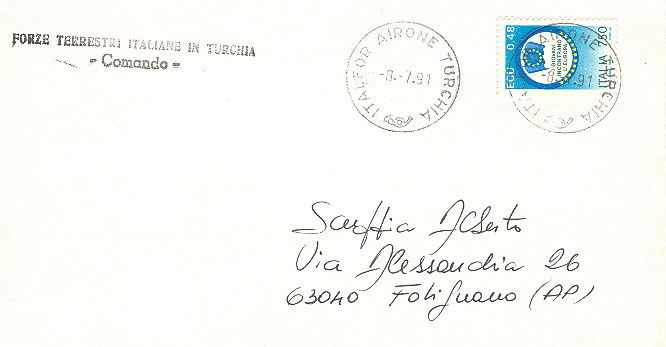 FORZE TERRESTRI ITALIANE IN TURCHIA
- Comando -
ITALFOR AIRONE TURCHIA
-8.-7.91
ECU 0,48
I GIOVANI
INCONTRANO
L'EUROPA
ITALIA 750
ITALFOR AIRONE TURCHIA
-8.-7.91
Via Alessandria 26
63040 Folignano (AP)